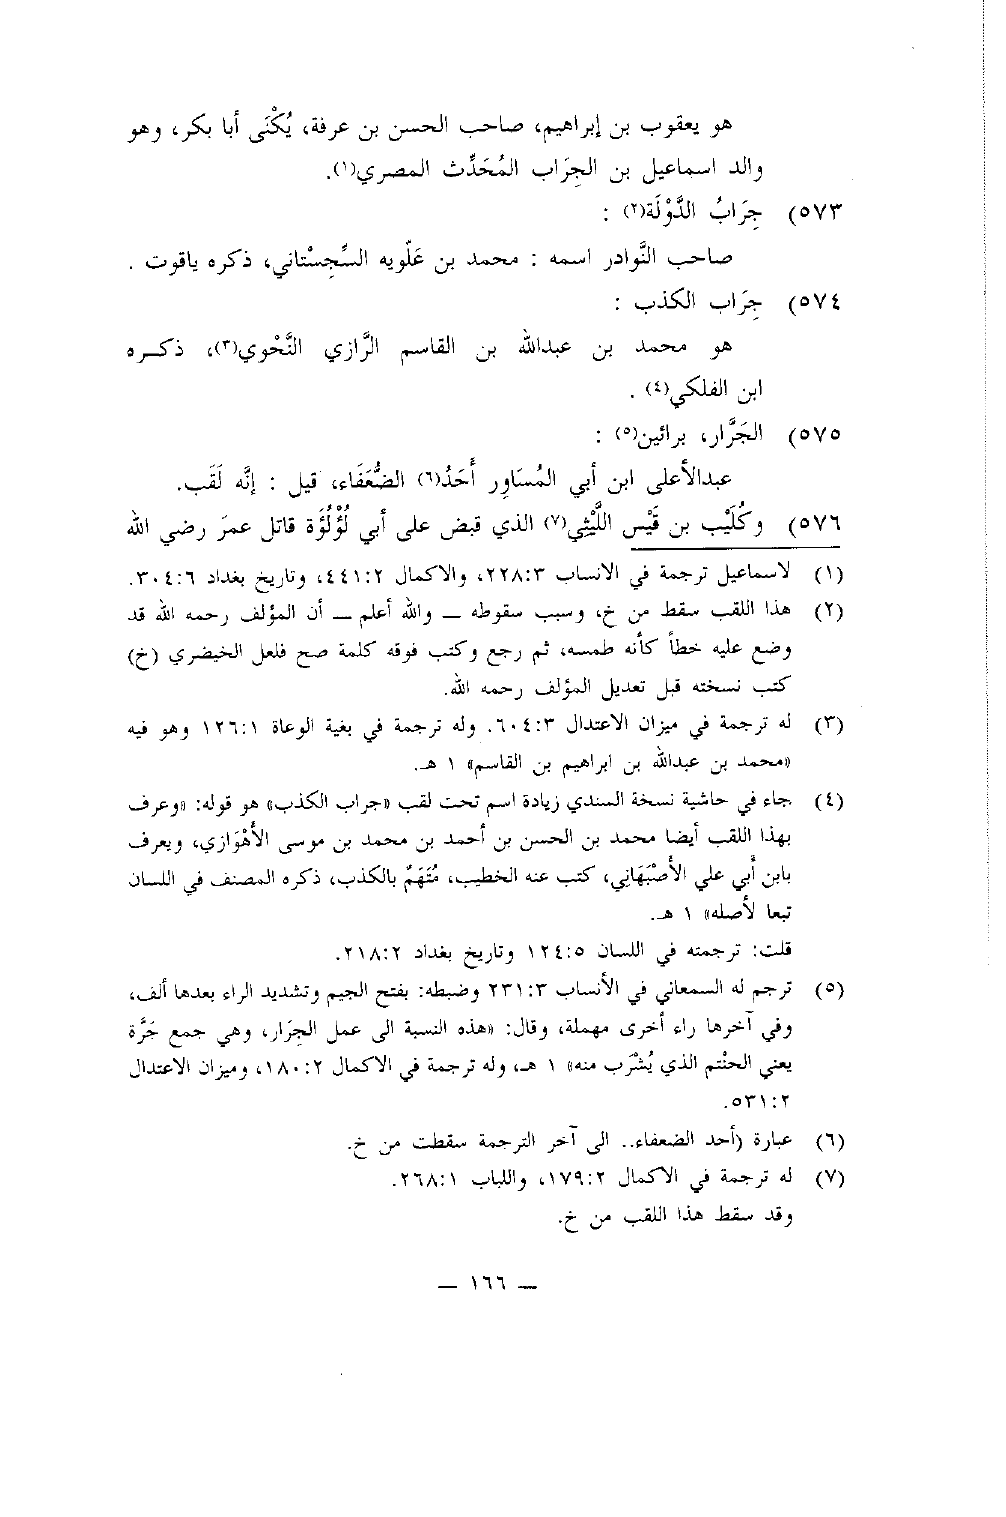 هو يعقوب بن إبراهيم، صاحب الحسن بن عرفة، يُكْنَى أبا بكر، وهو
والد اسماعيل بن الجِرَاب المُحَدِّث المصري(١).
٥٧٣) جِرَابُ الدَّوْلَة(٢) :
صاحب النَّوادر اسمه : محمد بن عَلّويه السِّجِسْتاني، ذكره ياقوت .
٥٧٤) جِرَاب الكذب :
هو محمد بن عبدالله بن القاسم الرَّازي النَّحْوي(٣)، ذكره
ابن الفلكي(٤) .
٥٧٥) الجَرَّار، برائين(٥) :
عبدالأعلى ابن أبي المُسَاوِر أَحَدُ(٦) الضُّعَفَاء، قيل : إنَّه لَقَب.
٥٧٦) وكُلَيْب بن قَيْس اللَّيْثِي(٧) الذي قبض على أبي لُؤْلُؤَة قاتل عمرَ رضي الله
(١) لاسماعيل ترجمة في الانساب ٢٢٨:٣، والاكمال ٤٤١:٢، وتاريخ بغداد ٣٠٤:٦.
(٢) هذا اللقب سقط من خ، وسبب سقوطه — والله أعلم — أن المؤلف رحمه الله قد
وضع عليه خطأ كأنه طمسه، ثم رجع وكتب فوقه كلمة صح فلعل الخيضري (خ)
كتب نسخته قبل تعديل المؤلف رحمه الله.
(٣) له ترجمة في ميزان الاعتدال ٦٠٤:٣. وله ترجمة في بغية الوعاة ١٢٦:١ وهو فيه
«محمد بن عبدالله بن ابراهيم بن القاسم» ١ هـ.
(٤) جاء في حاشية نسخة السندي زيادة اسم تحت لقب «جراب الكذب» هو قوله: «وعرف
بهذا اللقب أيضا محمد بن الحسن بن أحمد بن محمد بن موسى الأَهْوَازي، ويعرف
بابن أَبي علي الأَصْبَهَاني، كتب عنه الخطيب، مُتَهَمٌ بالكذب، ذكره المصنف في اللسان
تبعا لأصله» ١ هـ.
قلت: ترجمته في اللسان ١٢٤:٥ وتاريخ بغداد ٢١٨:٢.
(٥) ترجم له السمعاني في الأنساب ٢٣١:٣ وضبطه: بفتح الجيم وتشديد الراء بعدها ألف،
وفي آخرها راء أخرى مهملة، وقال: «هذه النسبة الى عمل الجِرَار، وهي جمع جَرَّة
يعني الحنْتم الذي يُشرَب منه» ١ هـ، وله ترجمة في الاكمال ١٨٠:٢، وميزان الاعتدال
٥٣١:٢.
(٦) عبارة (أحد الضعفاء.. الى آخر الترجمة سقطت من خ.
(٧) له ترجمة في الاكمال ١٧٩:٢، واللباب ٢٦٨:١.
وقد سقط هذا اللقب من خ.
— ١٦٦ —